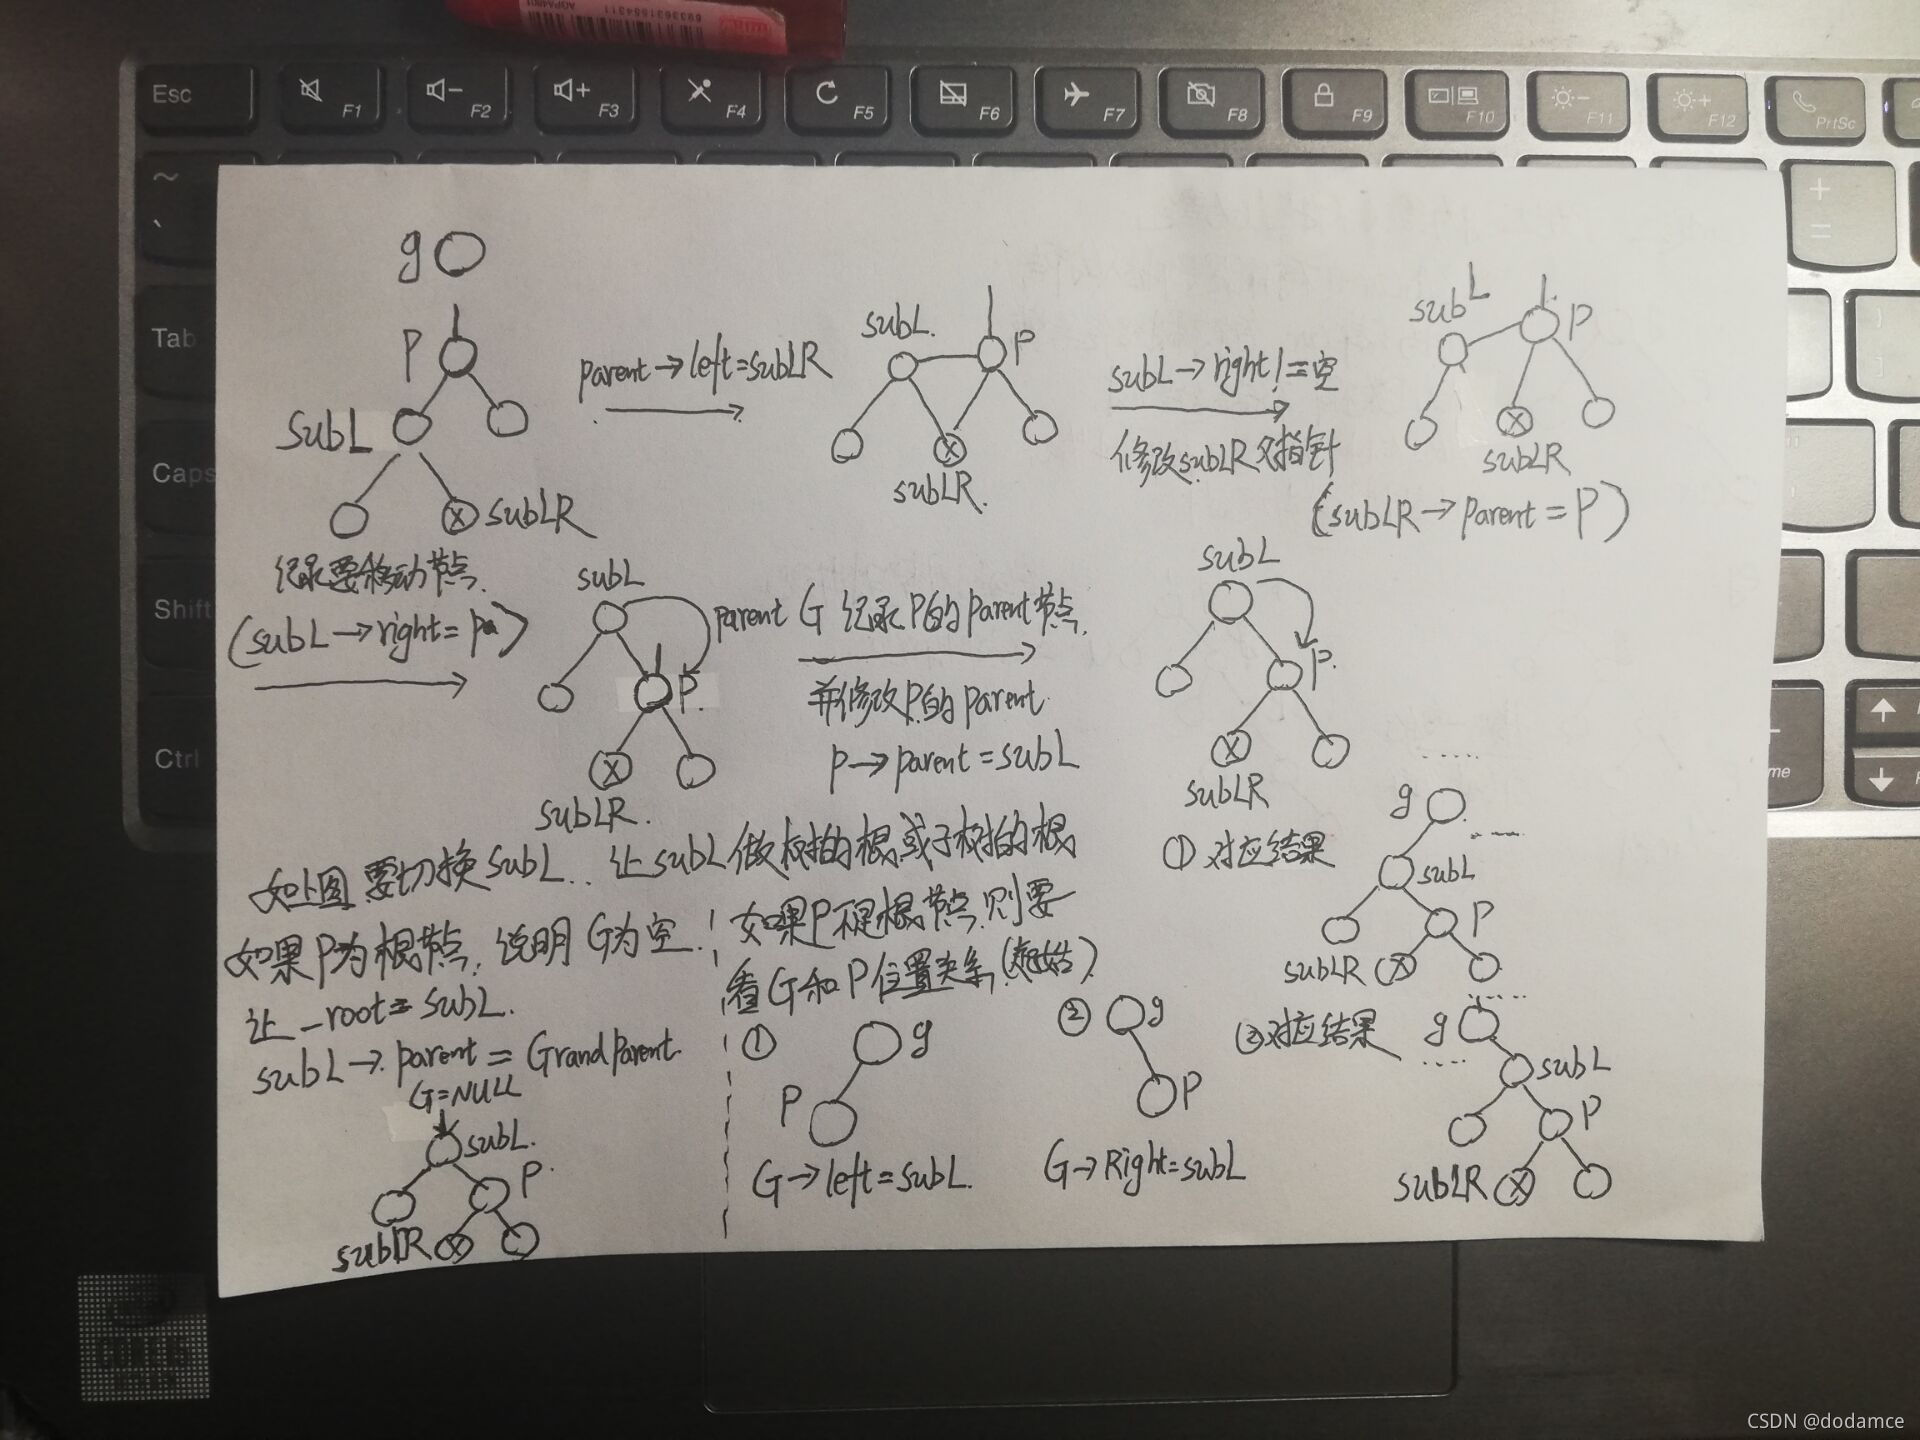 Esc
F1
F2
F3
F4
F5
F6
F7
F8
F9
F10
F11
F12
PrtSc
~
`
+
=
Tab
Caps
Shift
Ctrl
g
P
subL
subLR
parent→left=subLR
subL.
P
subLR.
subL→right!=空
修改subLR父指针
subL
P
subLR
(subLR→parent=P)
记录要移动节点.
(subL→right=Pa)
subL
P.
subLR.
parent G 记录P的parent节点.
并修改P的parent
P→parent=subL
subL
P.
subLR
如上图要切换subL.. 让subL做树的根或子树的根
如果P为根节点.说明G为空.
让_root=subL.
subL→parent=Grandparent.
G=NULL
subL.
P.
subLR
如果P不是根节点.则要
看G和P位置关系
①
g
P
G→left=subL.
②
g
P
G→Right=subL
①对应结果
g
subL
P
subLR
②对应结果
g
subL
P
subLR
CSDN @dodamce